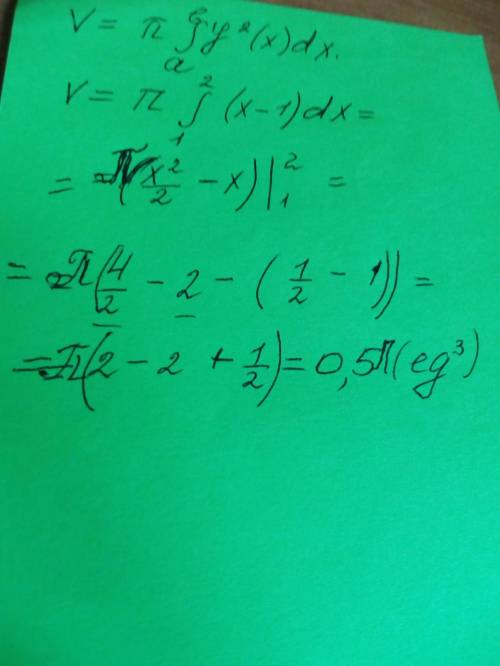 V = π ∫ₐᵇ y²(x)dx.
V = π ∫₁² (x-1)dx =
= π(x²/2 - x)|₁² =
= π(4/2 - 2 - (1/2 - 1)) =
= π(2 - 2 + 1/2) = 0,5π(eg³)